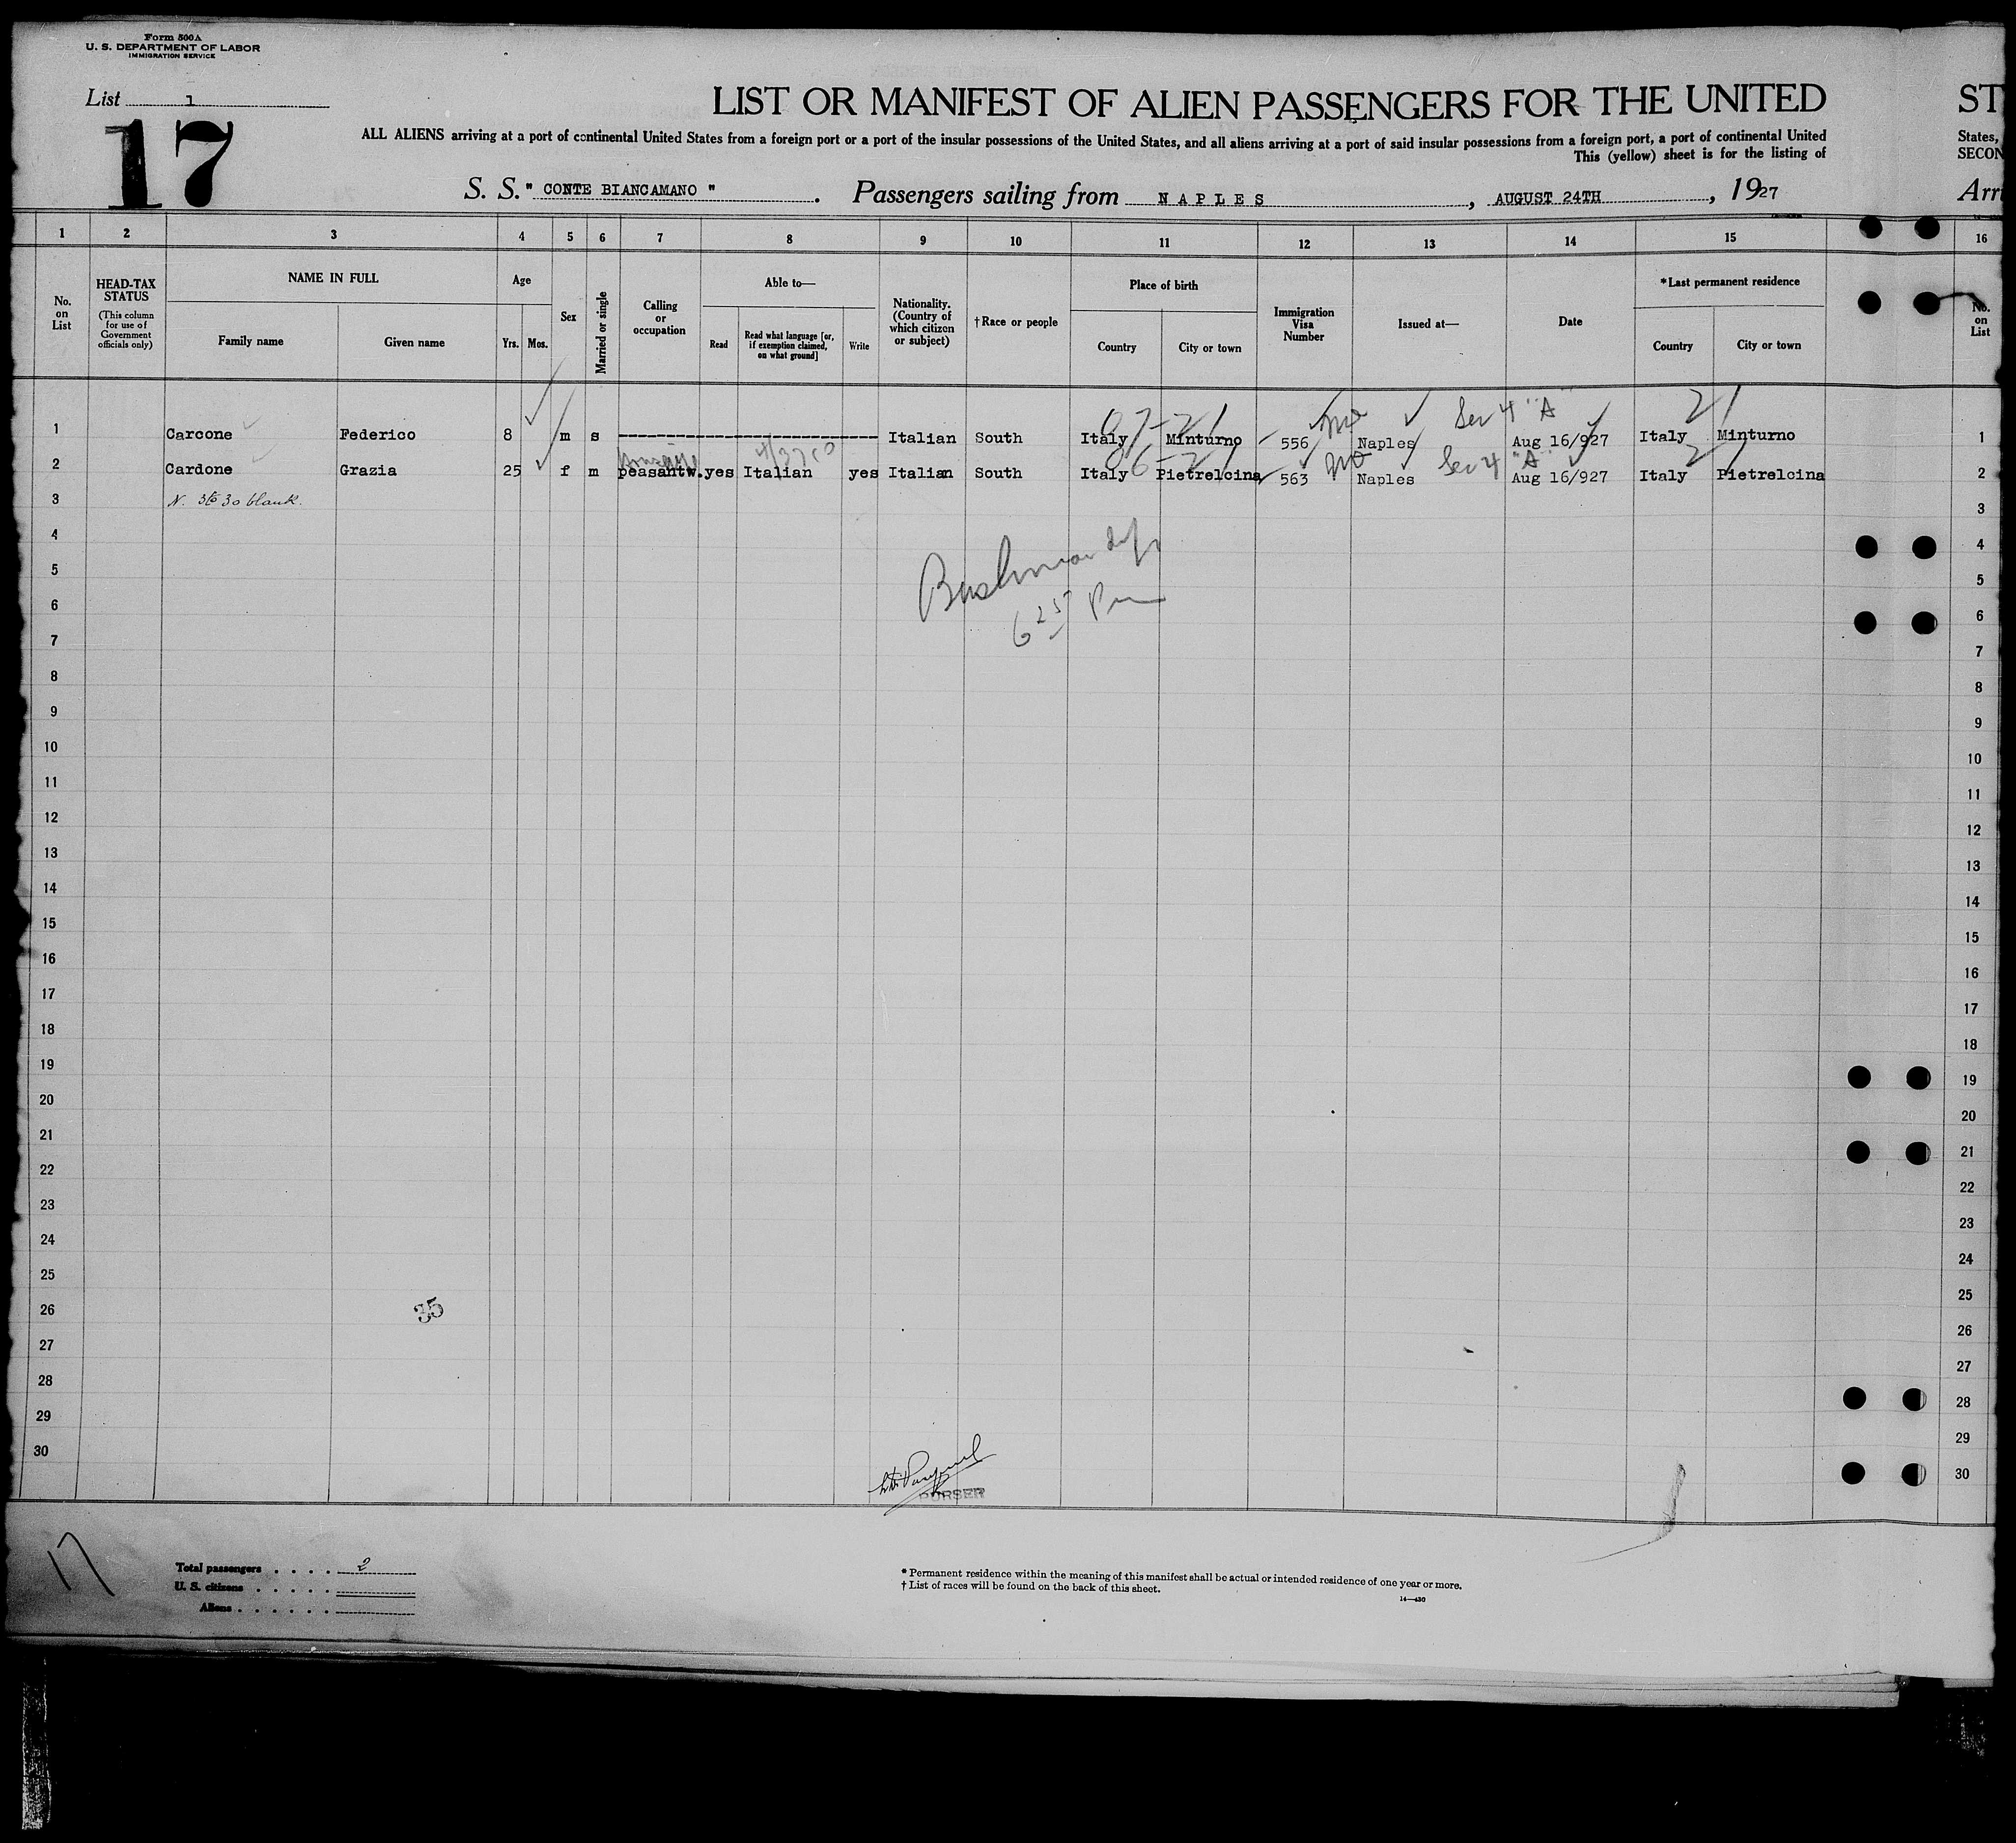 Form 500A
U. S. DEPARTMENT OF LABOR
IMMIGRATION SERVICE
List 1
17
LIST OR MANIFEST OF ALIEN PASSENGERS FOR THE UNITED
ST
ALL ALIENS arriving at a port of continental United States from a foreign port or a port of the insular possessions of the United States, and all aliens arriving at a port of said insular possessions from a foreign port, a port of continental United
States,
This (yellow) sheet is for the listing of
SECON
S. S. " CONTE BIANCAMANO ". Passengers sailing from NAPLES, AUGUST 24TH, 1927
Arri
1 2 3 4 5 6 7 8 9 10 11 12 13 14 15 16
No. on List
HEAD-TAX STATUS (This column for use of Government officials only)
NAME IN FULL
Family name
Given name
Age
Yrs. Mos.
Sex
Married or single
Calling or occupation
Able to—
Read
Read what language [or, if exemption claimed, on what ground]
Write
Nationality. (Country of which citizen or subject)
†Race or people
Place of birth
Country
City or town
Immigration Visa Number
Issued at—
Date
*Last permanent residence
Country
City or town
No. on List
07-21 Sec 4 "A" 21
1 Carcone Federico 8 m s Italian South Italy Minturno 556 Naples Aug 16/927 Italy Minturno 1
06-21 Sec 4 "A" 21
2 Cardone Grazia 25 f m peasantw. yes Italian yes Italian South Italy Pietrelcina 563 Naples Aug 16/927 Italy Pietrelcina 2
3 N. 3 to 30 blank. 3
4 4
5 5
6 6
6 25 Pm
7 7
8 8
9 9
10 10
11 11
12 12
13 13
14 14
15 15
16 16
17 17
18 18
19 19
20 20
21 21
22 22
23 23
24 24
25 25
26 35 26
27 27
28 28
29 29
30 30
PURSER
17
Total passengers . . . . 2
U. S. citizens . . . . .
Aliens . . . . . .
* Permanent residence within the meaning of this manifest shall be actual or intended residence of one year or more.
† List of races will be found on the back of this sheet.
14—430